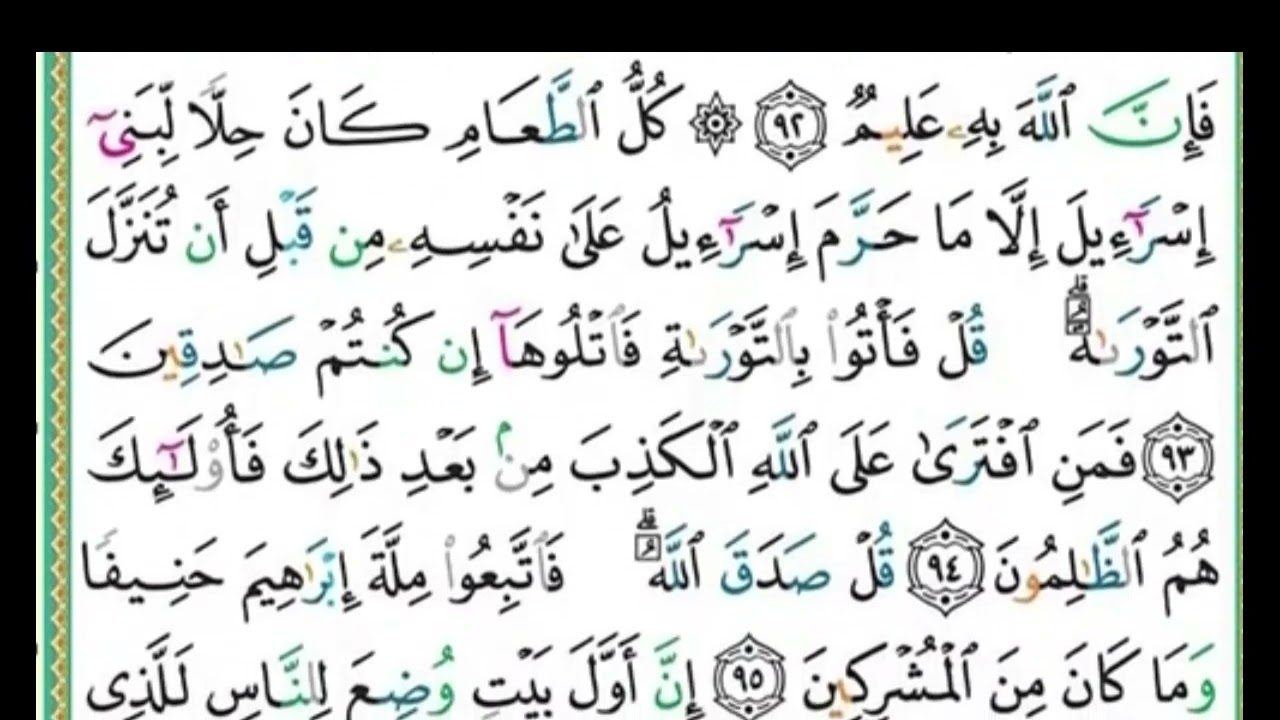 فَإِنَّ ٱللَّهَ بِهِۦ عَلِيمٌ ٩٢ ۞ كُلُّ ٱلطَّعَامِ كَانَ حِلًّا لِّبَنِىٓ
إِسْرَٰٓءِيلَ إِلَّا مَا حَرَّمَ إِسْرَٰٓءِيلُ عَلَىٰ نَفْسِهِۦ مِن قَبْلِ أَن تُنَزَّلَ
ٱلتَّوْرَىٰةُ ۗ قُلْ فَأْتُوا۟ بِٱلتَّوْرَىٰةِ فَٱتْلُوهَآ إِن كُنتُمْ صَـٰدِقِينَ
٩٣ فَمَنِ ٱفْتَرَىٰ عَلَى ٱللَّهِ ٱلْكَذِبَ مِنۢ بَعْدِ ذَٰلِكَ فَأُو۟لَـٰٓئِكَ
هُمُ ٱلظَّـٰلِمُونَ ٩٤ قُلْ صَدَقَ ٱللَّهُ ۗ فَٱتَّبِعُوا۟ مِلَّةَ إِبْرَٰهِيمَ حَنِيفًا
وَمَا كَانَ مِنَ ٱلْمُشْرِكِينَ ٩٥ إِنَّ أَوَّلَ بَيْتٍ وُضِعَ لِلنَّاسِ لَلَّذِى